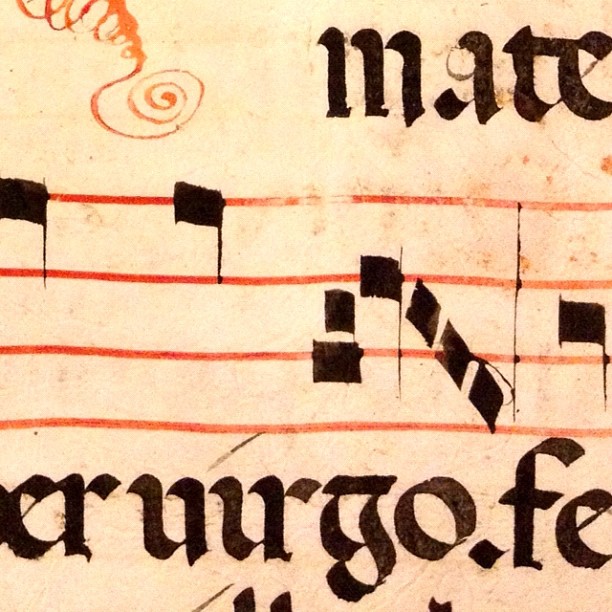 mate
er uirgo. fe